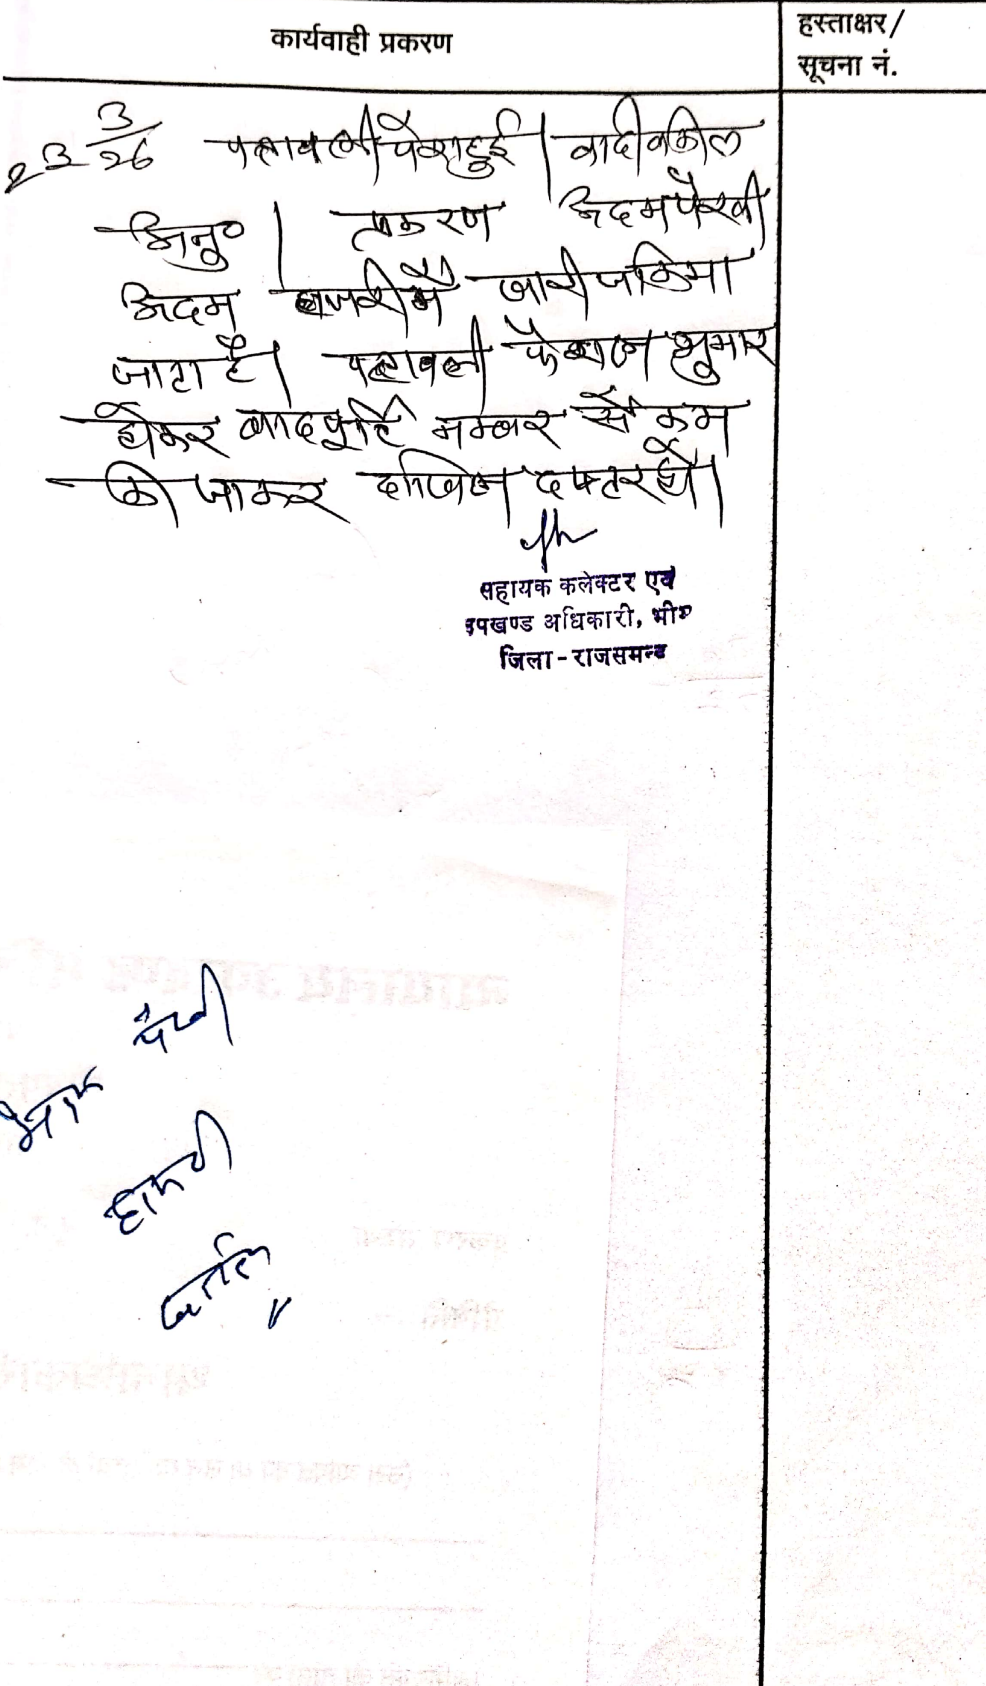 कार्यवाही प्रकरण
हस्ताक्षर/
सूचना नं.
23 3/26 पत्रावली पेश हुई। वादी वकील
अनु०। प्रकरण अदम पैरवी
अदम हाजरी में खारीज किया
जाता है। पत्रावली फैसल शुमार
होकर बाद पूर्ति नम्बर से कम
की जाकर दाखिल दफ्तर हो।
सहायक कलेक्टर एवं
उपखण्ड अधिकारी, भीम
जिला - राजसमन्द
पैरवी